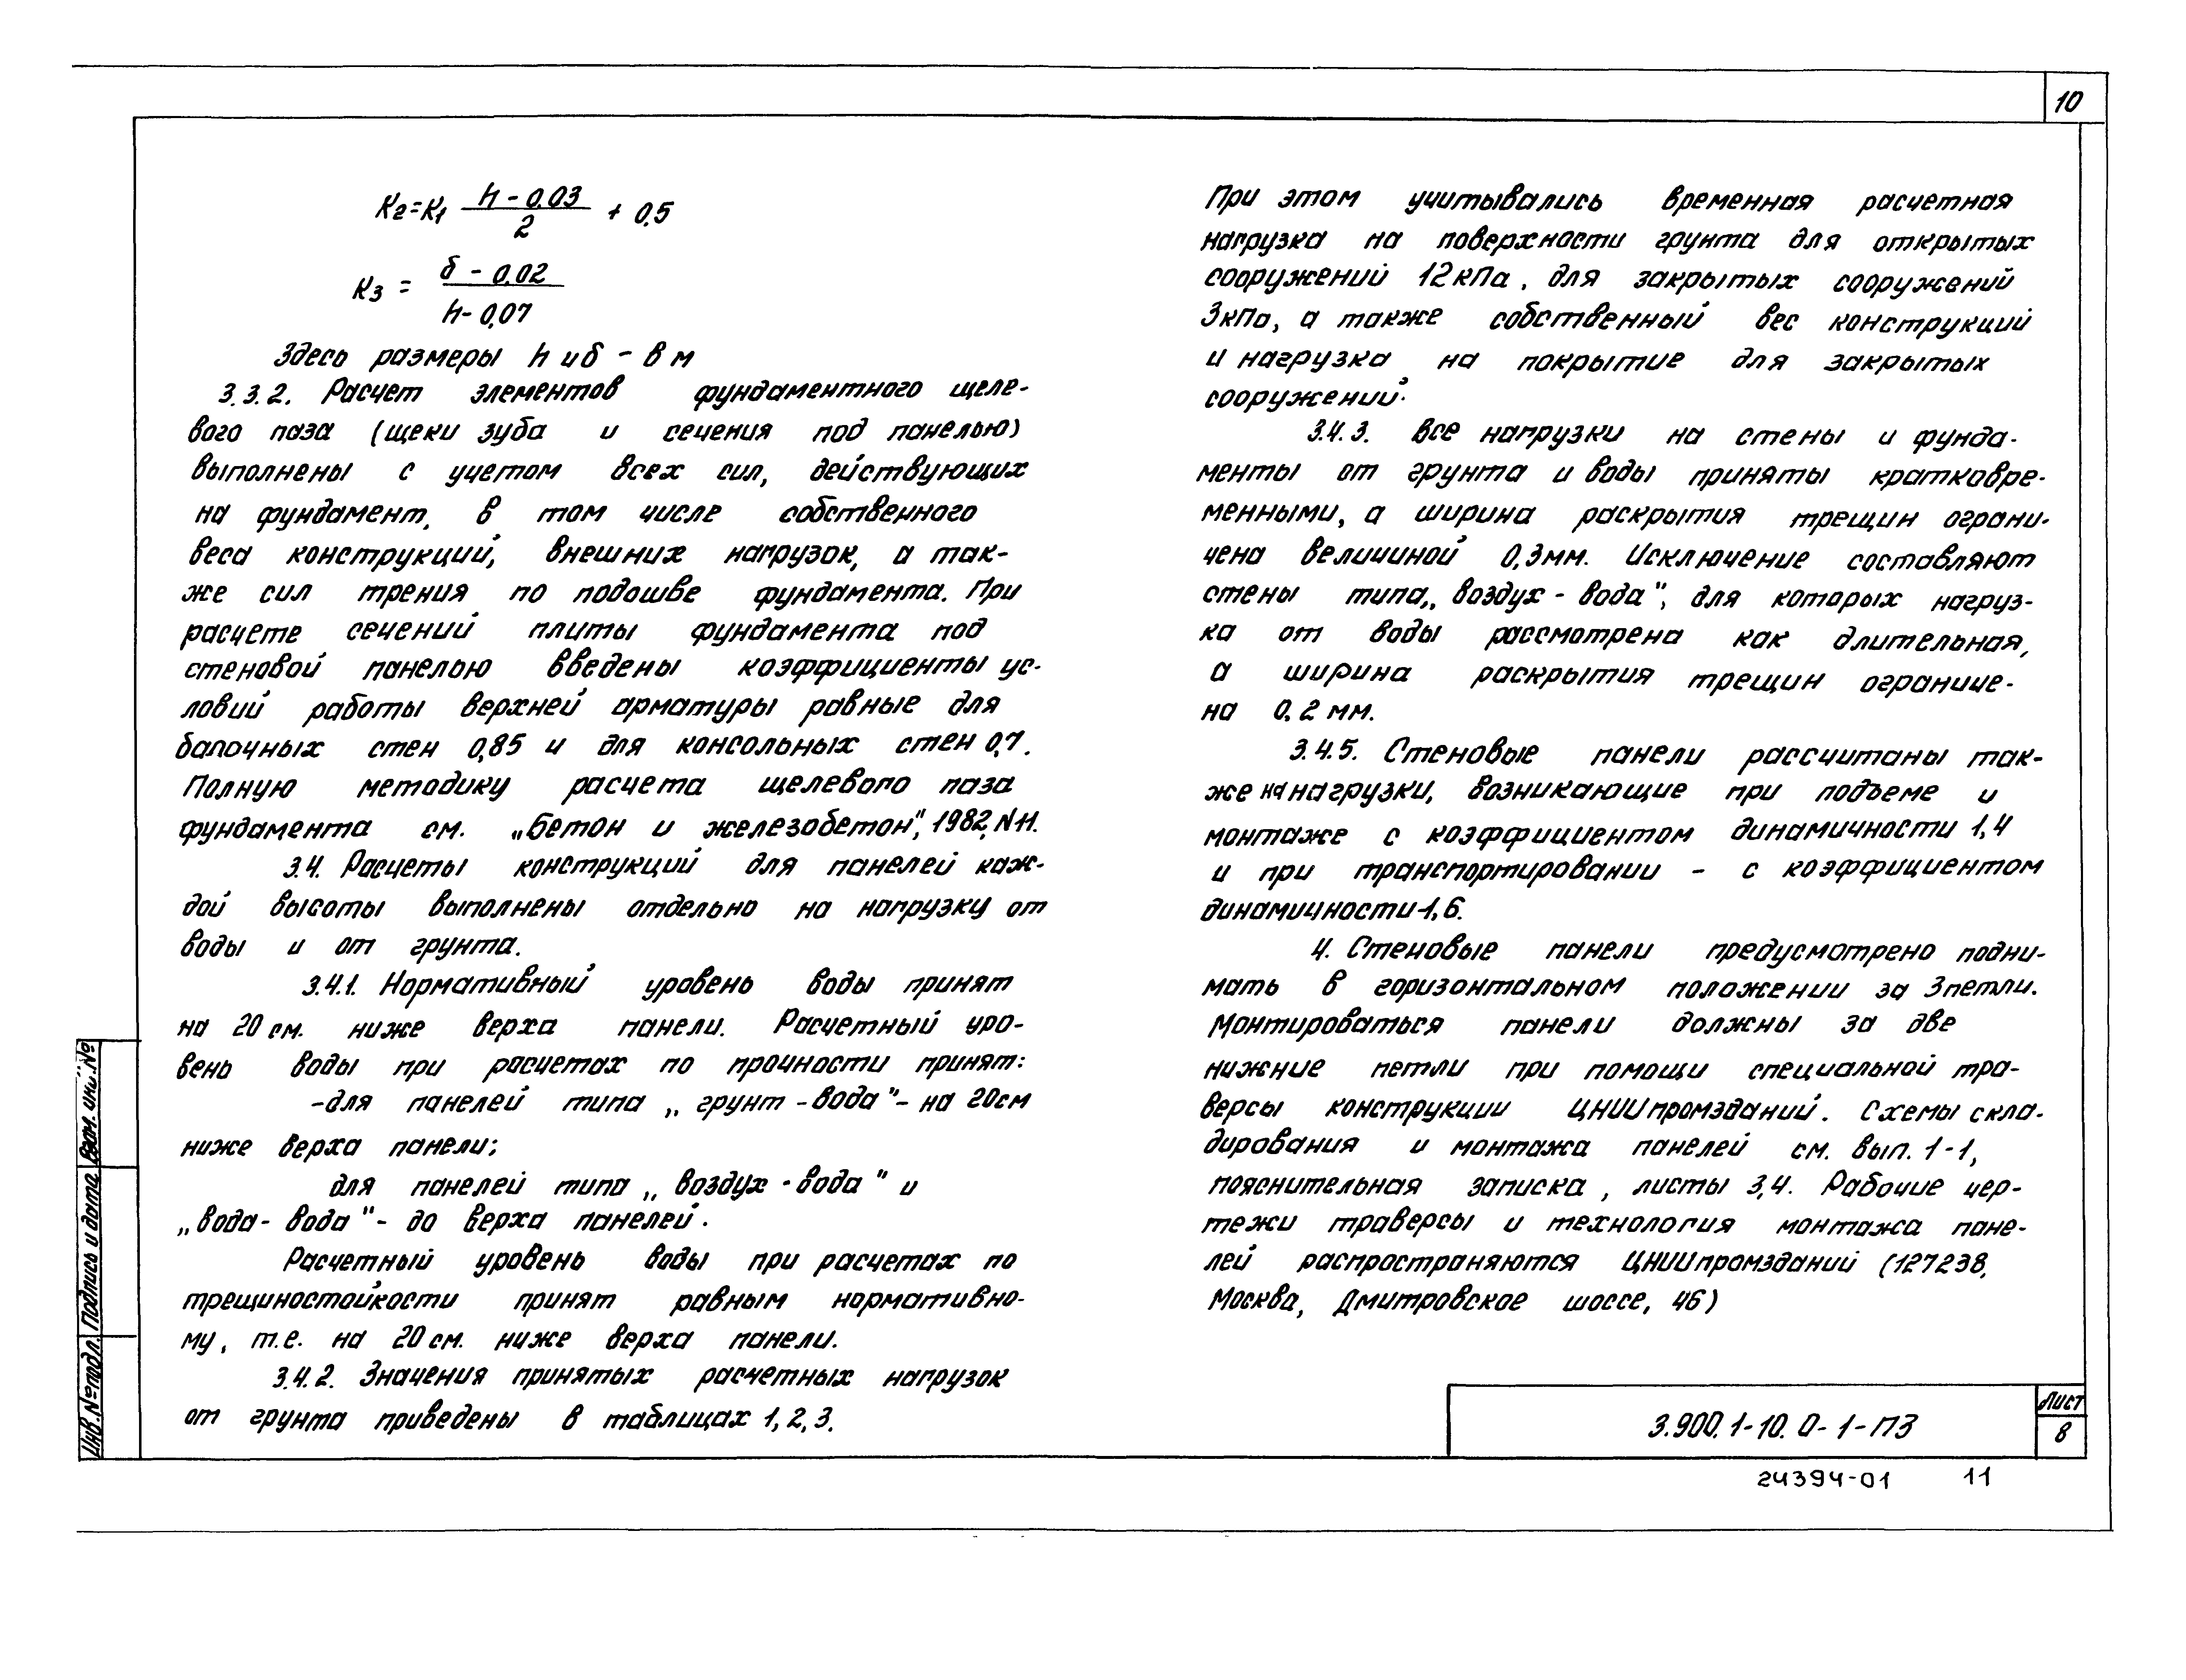 10
К2=К1 (h - 0,03)/2 + 0,5
К3 = (δ - 0,02)/(h - 0,07)
Здесь размеры h и δ - в м
3.3.2. Расчет элементов фундаментного щеле-
вого паза (щеки зуба и сечения под панелью)
выполнены с учетом всех сил, действующих
на фундамент, в том числе собственного
веса конструкций, внешних нагрузок, а так-
же сил трения по подошве фундамента. При
расчете сечений плиты фундамента под
стеновой панелью введены коэффициенты ус-
ловий работы верхней арматуры равные для
балочных стен 0,85 и для консольных стен 0,7.
Полную методику расчета щелевого паза
фундамента см. „Бетон и железобетон", 1982, N11.
3.4. Расчеты конструкций для панелей каж-
дой высоты выполнены отдельно на нагрузку от
воды и от грунта.
3.4.1. Нормативный уровень воды принят
на 20 см. ниже верха панели. Расчетный уро-
вень воды при расчетах по прочности принят:
-для панелей типа „грунт - вода"- на 20см
ниже верха панели;
для панелей типа „воздух - вода" и
„вода- вода"- до верха панелей.
Расчетный уровень воды при расчетах по
трещиностойкости принят равным нормативно-
му, т.е. на 20 см. ниже верха панели.
3.4.2. Значения принятых расчетных нагрузок
от грунта приведены в таблицах 1, 2, 3.
При этом учитывались временная расчетная
нагрузка на поверхности грунта для открытых
сооружений 12 кПа, для закрытых сооружений
3кПа, а также собственный вес конструкций
и нагрузка на покрытие для закрытых
сооружений.
3.4.3. Все нагрузки на стены и фунда-
менты от грунта и воды приняты кратковре-
менными, а ширина раскрытия трещин ограни-
чена величиной 0,3мм. Исключение составляют
стены типа „воздух - вода", для которых нагруз-
ка от воды рассмотрена как длительная,
а ширина раскрытия трещин ограниче-
на 0,2 мм.
3.4.5. Стеновые панели рассчитаны так-
же на нагрузки, возникающие при подъеме и
монтаже с коэффициентом динамичности 1,4
и при транспортировании - с коэффициентом
динамичности-1,6.
4. Стеновые панели предусмотрено подни-
мать в горизонтальном положении за 3 петли.
Монтироваться панели должны за две
нижние петли при помощи специальной тра-
версы конструкции ЦНИИпромзданий. Схемы скла-
дирования и монтажа панелей см. вып. 1-1,
пояснительная записка, листы 3,4. Рабочие чер-
тежи траверсы и технология монтажа пане-
лей распространяются ЦНИИпромзданий (127238,
Москва, Дмитровское шоссе, 46)
Инв.№подл. Подпись и дата Взам. инв.№
3.900.1-10.0-1-ПЗ
Лист
8
24394-01 11